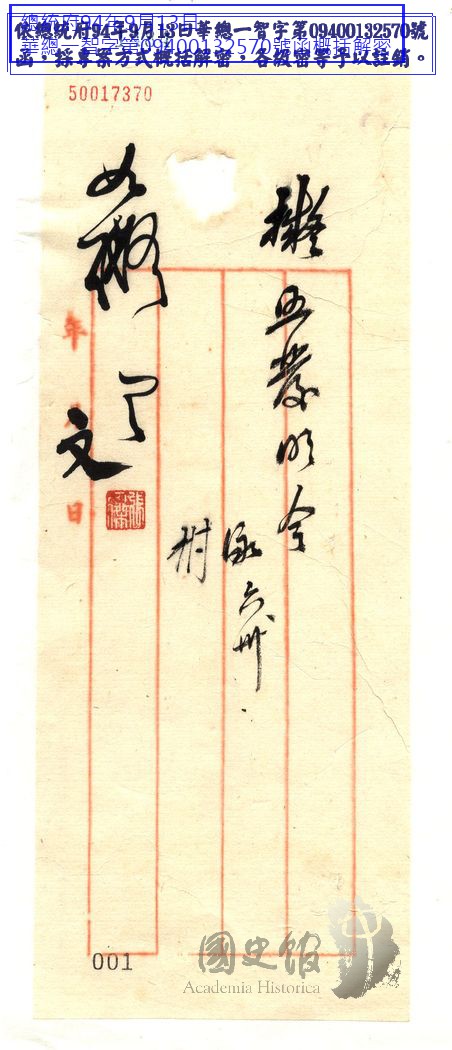 總統府94年9月13日
華總一智字第09400132570號函概括解密
依總統府94年9月13日華總一智字第09400132570號
函，採專案方式概括解密，各級密等予以註銷。
50017370
擬照發明令
六卅
樹
如擬
文
年
日
001
國史館
Academia Historica